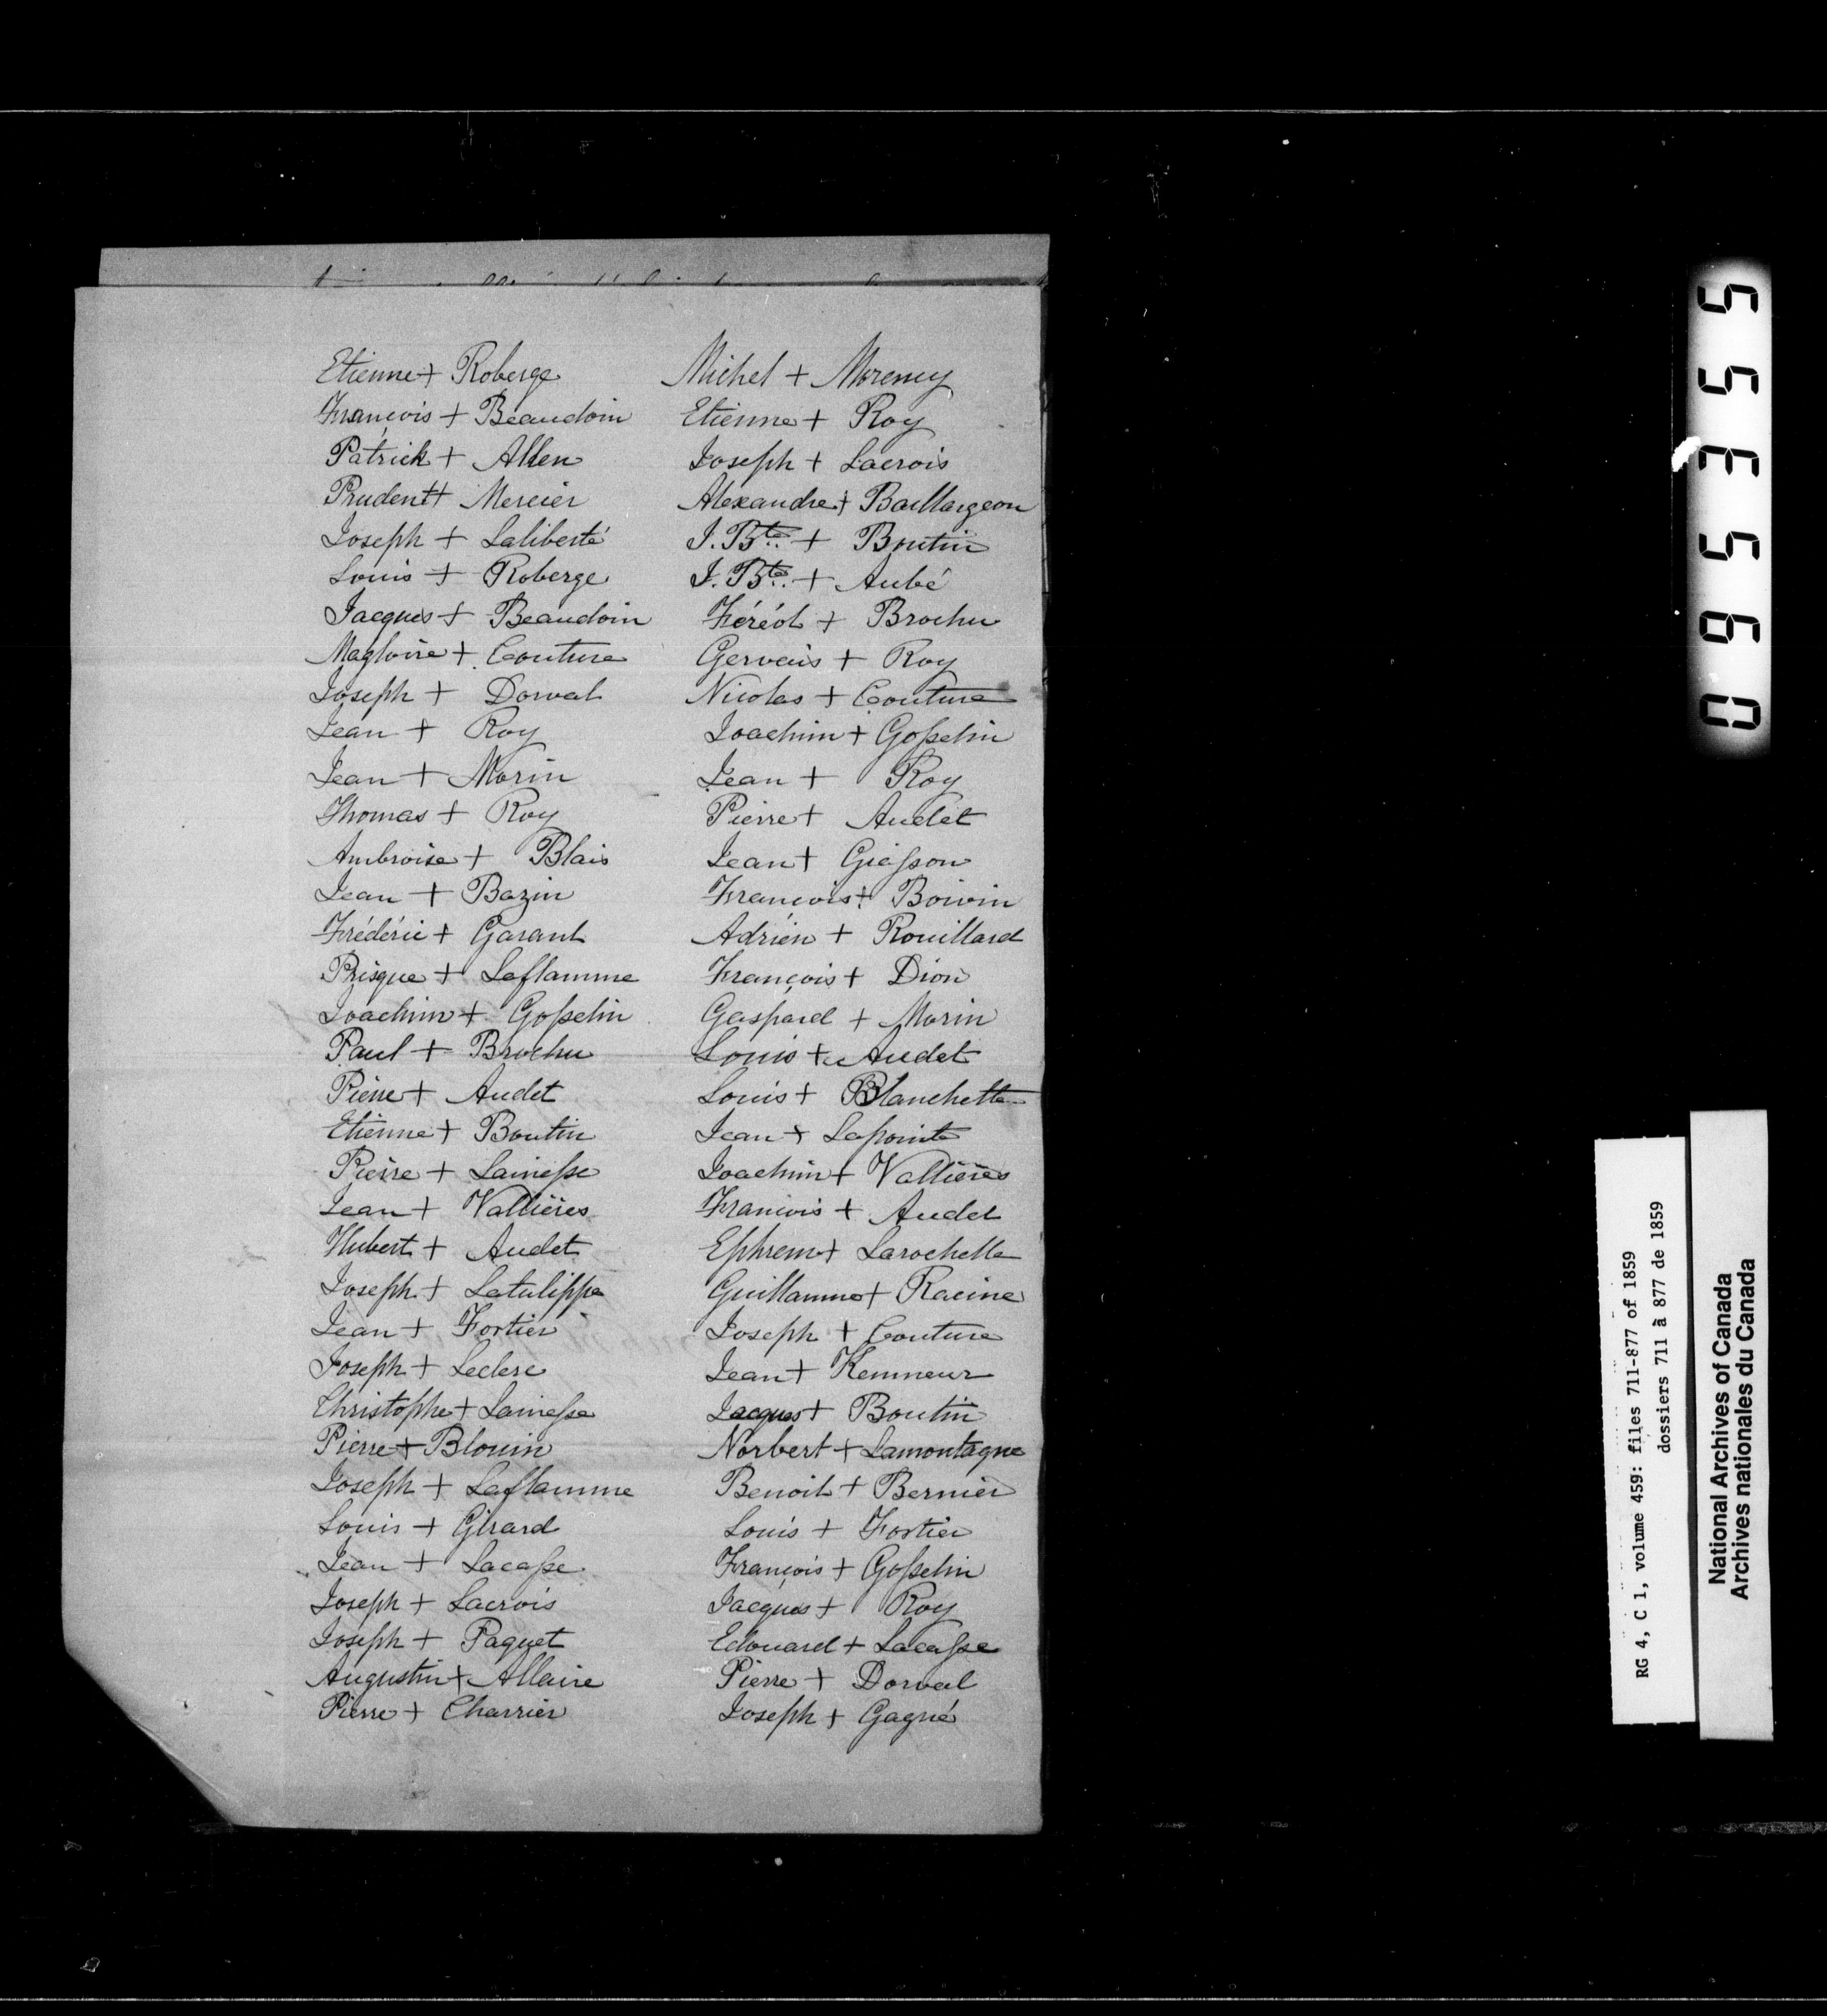 Etienne + Roberge
François + Beaudoin
Patrick + Allen
Prudent + Mercier
Joseph + Laliberté
Louis + Roberge
Jacques + Beaudoin
Magloire + Couture
Joseph + Dorval
Jean + Roy
Jean + Morin
Thomas + Roy
Ambroise + Blais
Jean + Bazin
Frédéric + Garant
Prisque + Laflamme
Joachim + Gosselin
Paul + Brochu
Pierre + Audet
Etienne + Boutin
Pierre + Lainesse
Jean + Vallières
Hubert + Audet
Joseph + Latulippe
Jean + Fortier
Joseph + Leclerc
Christophe + Lainesse
Pierre + Blouin
Joseph + Laflamme
Louis + Girard
Jean + Lacasse
Joseph + Lacrois
Joseph + Paquet
Augustin + Allaire
Pierre + Charrier
Michel + Morency
Etienne + Roy
Joseph + Lacrois
Alexandre + Baillargeon
J. Bte. + Boutin
J. Bte. + Aubé
Féréol + Brochu
Gervais + Roy
Nicolas + Couture
Joachim + Gosselin
Jean + Roy
Pierre + Audet
Jean + Giasson
François + Boivin
Adrien + Rouillard
François + Dion
Gaspard + Morin
Louis + Audet
Louis + Blanchette
Jean + Lapointe
Joachim + Vallières
Francois + Audet
Ephrem + Larochelle
Guillaume + Racine
Joseph + Couture
Jean + Kemneur
Jacques + Boutin
Norbert + Lamontagne
Benoit + Bernier
Louis + Fortier
François + Gosselin
Jacques + Roy
Edouard + Lacasse
Pierre + Dorval
Joseph + Gagné
095355
RG 4, C 1, volume 459: files 711-877 of 1859
dossiers 711 à 877 de 1859
National Archives of Canada
Archives nationales du Canada